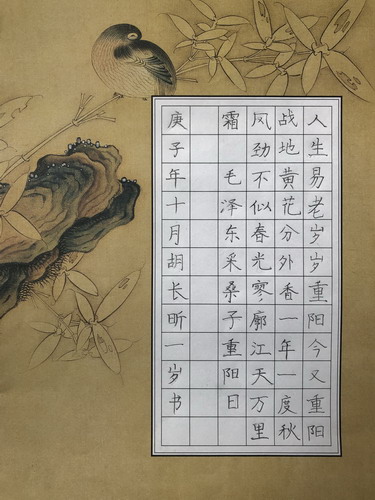 人生易老岁岁重阳今又重阳
战地黄花分外香一年一度秋
风劲不似春光寥廓江天万里
霜 毛泽东采桑子重阳日
庚子年十月胡长昕一岁书